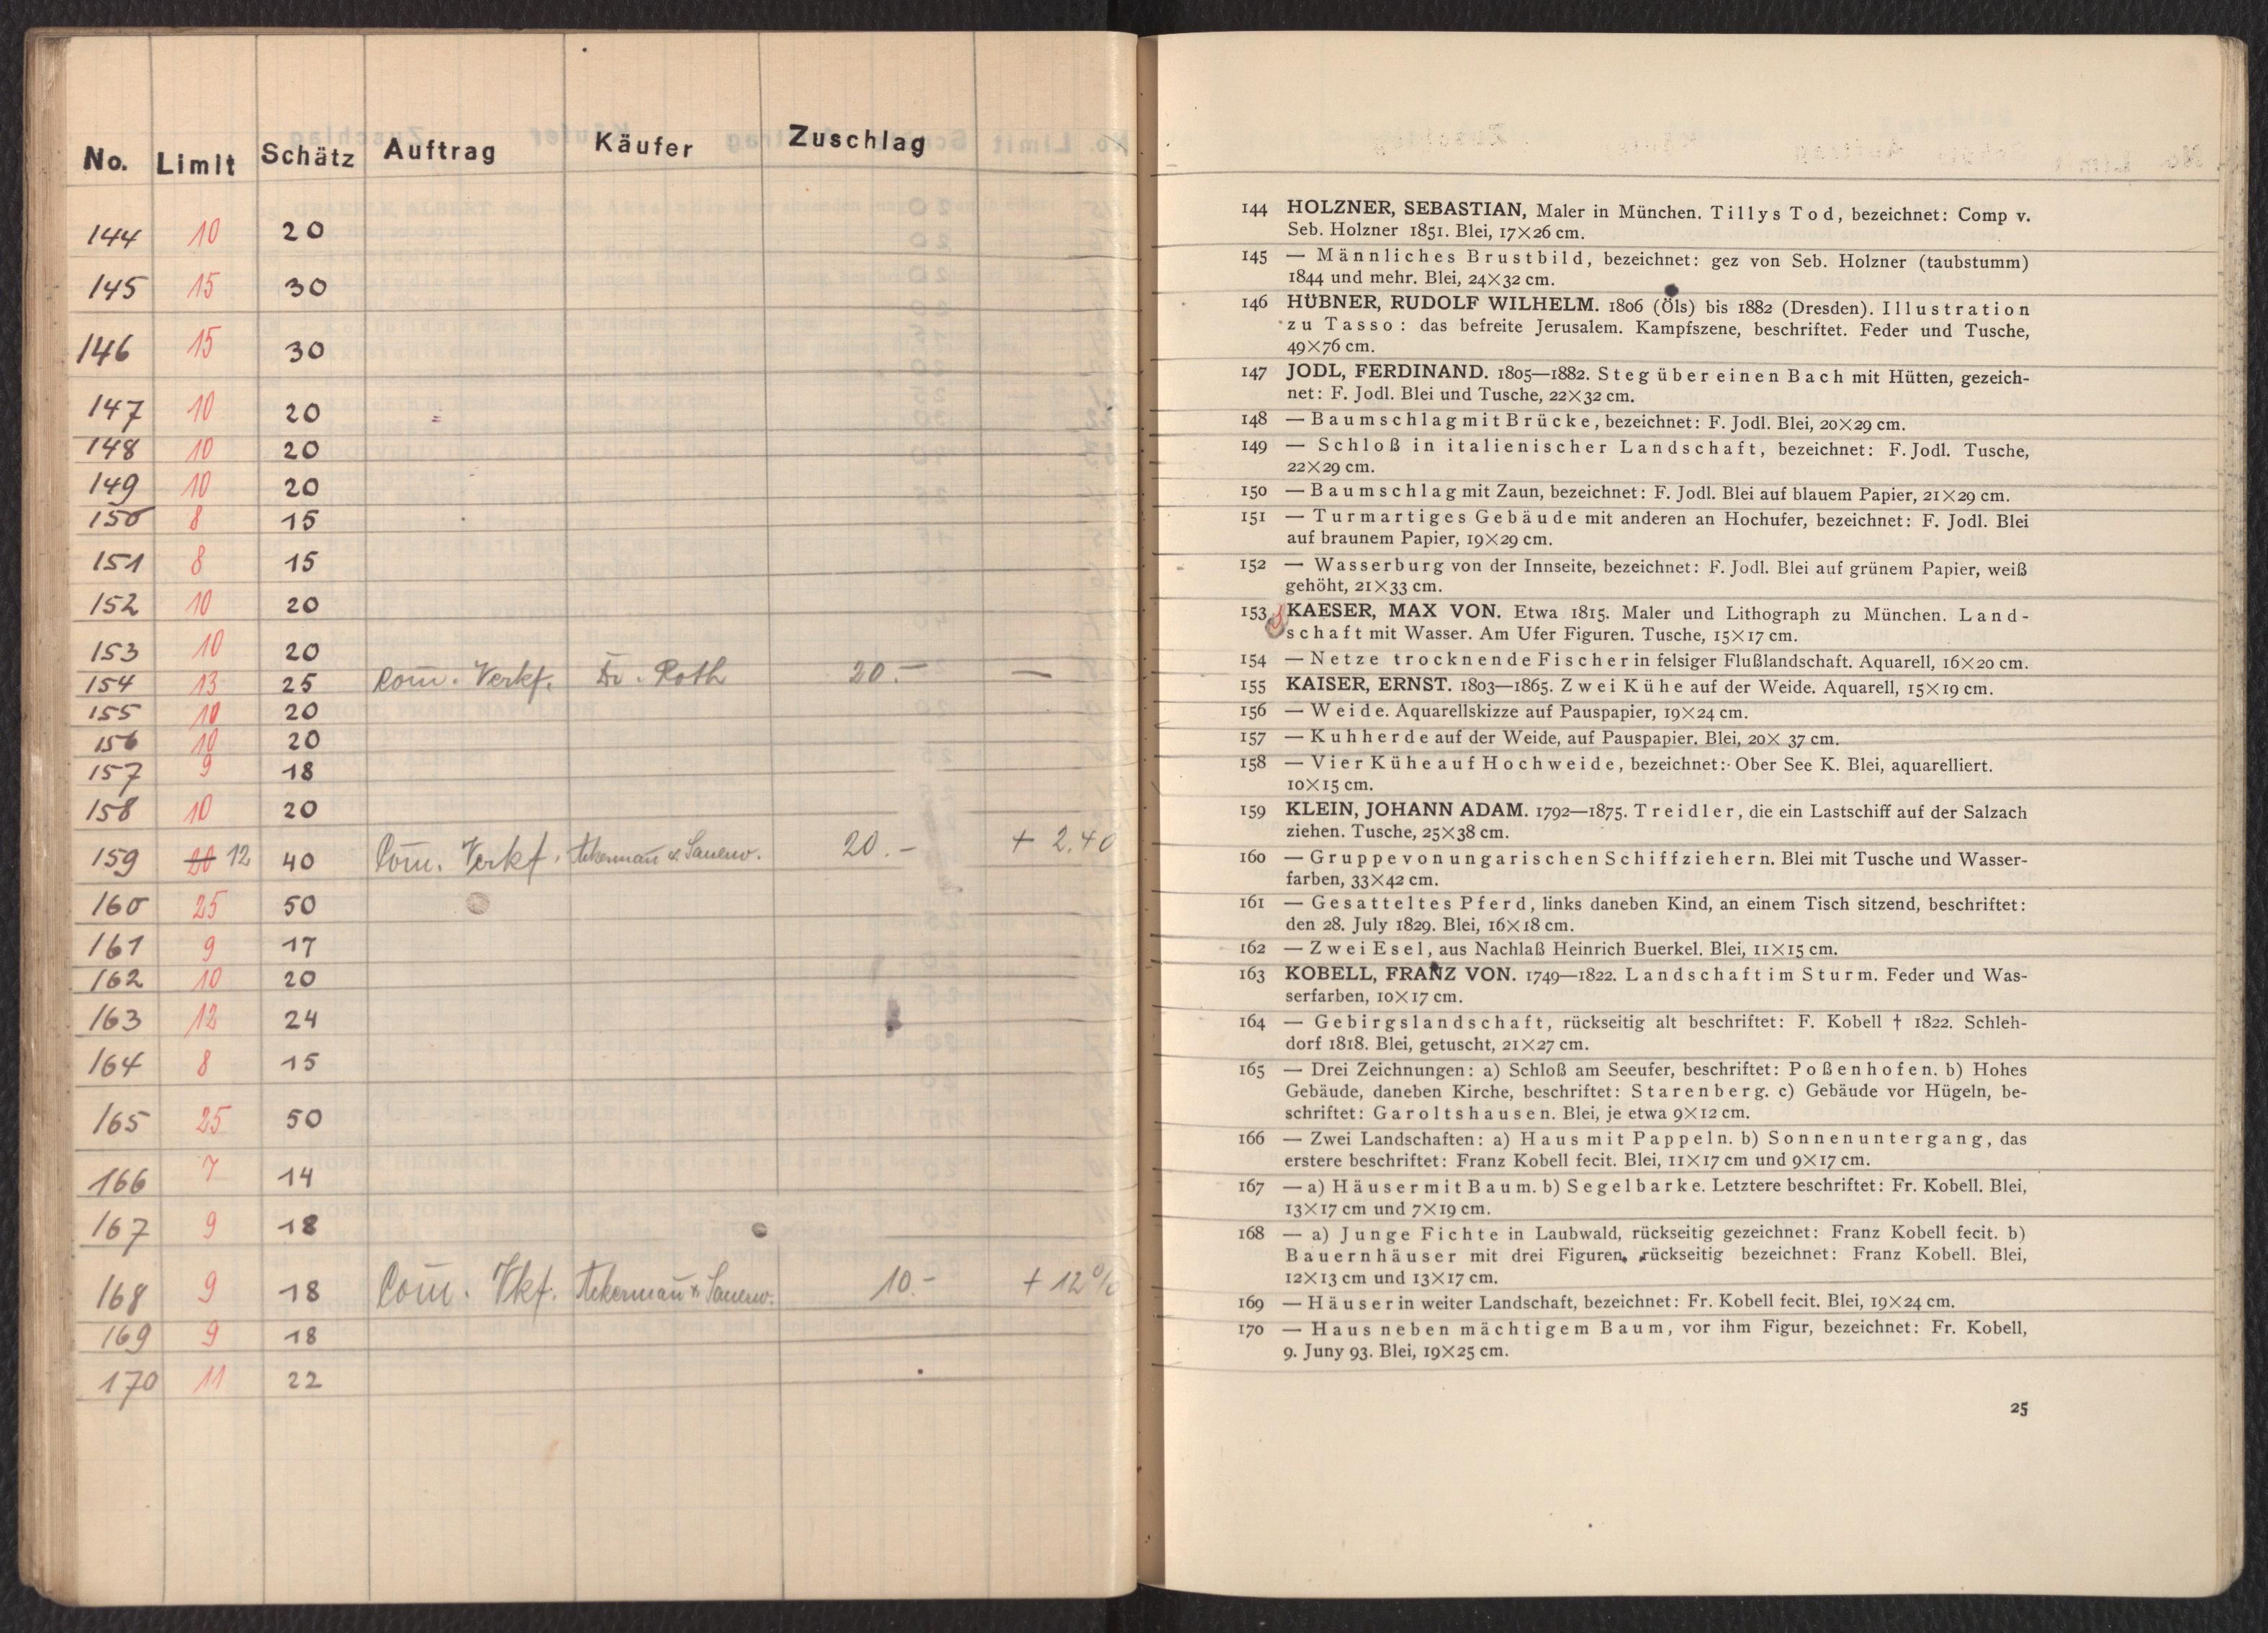 No. Limit Schätz Auftrag Käufer Zuschlag
144 10 20
145 15 30
146 15 30
147 10 20
148 10 20
149 10 20
150 8 15
151 8 15
152 10 20
153 10 20
154 13 25 Com. Verkf. Dr. Roth 20.– —
155 10 20
156 10 20
157 9 18
158 10 20
159 20 12 40 Com. Verkf. Ackermann & Sauerw. 20.– + 2.40
160 25 50
161 9 17
162 10 20
163 12 24
164 8 15
165 25 50
166 7 14
167 9 18
168 9 18 Com. Vkf. Ackermann & Sauerw. 10.– + 12%
169 9 18
170 11 22
144 HOLZNER, SEBASTIAN, Maler in München. Tillys Tod, bezeichnet: Comp v.
Seb. Holzner 1851. Blei, 17×26 cm.
145 — Männliches Brustbild, bezeichnet: gez von Seb. Holzner (taubstumm)
1844 und mehr. Blei, 24×32 cm.
146 HÜBNER, RUDOLF WILHELM. 1806 (Öls) bis 1882 (Dresden). Illustration
zu Tasso: das befreite Jerusalem. Kampfszene, beschriftet. Feder und Tusche,
49×76 cm.
147 JODL, FERDINAND. 1805—1882. Steg über einen Bach mit Hütten, gezeich-
net: F. Jodl. Blei und Tusche, 22×32 cm.
148 — Baumschlag mit Brücke, bezeichnet: F. Jodl. Blei, 20×29 cm.
149 — Schloß in italienischer Landschaft, bezeichnet: F. Jodl. Tusche,
22×29 cm.
150 — Baumschlag mit Zaun, bezeichnet: F. Jodl. Blei auf blauem Papier, 21×29 cm.
151 — Turmartiges Gebäude mit anderen an Hochufer, bezeichnet: F. Jodl. Blei
auf braunem Papier, 19×29 cm.
152 — Wasserburg von der Innseite, bezeichnet: F. Jodl. Blei auf grünem Papier, weiß
gehöht, 21×33 cm.
153 KAESER, MAX VON. Etwa 1815. Maler und Lithograph zu München. Land-
schaft mit Wasser. Am Ufer Figuren. Tusche, 15×17 cm.
154 — Netze trocknende Fischer in felsiger Flußlandschaft. Aquarell, 16×20 cm.
155 KAISER, ERNST. 1803—1865. Zwei Kühe auf der Weide. Aquarell, 15×19 cm.
156 — Weide. Aquarellskizze auf Pauspapier, 19×24 cm.
157 — Kuhherde auf der Weide, auf Pauspapier. Blei, 20× 37 cm.
158 — Vier Kühe auf Hochweide, bezeichnet: Ober See K. Blei, aquarelliert.
10×15 cm.
159 KLEIN, JOHANN ADAM. 1792—1875. Treidler, die ein Lastschiff auf der Salzach
ziehen. Tusche, 25×38 cm.
160 — Gruppe von ungarischen Schiffziehern. Blei mit Tusche und Wasser-
farben, 33×42 cm.
161 — Gesatteltes Pferd, links daneben Kind, an einem Tisch sitzend, beschriftet:
den 28. July 1829. Blei, 16×18 cm.
162 — Zwei Esel, aus Nachlaß Heinrich Buerkel. Blei, 11×15 cm.
163 KOBELL, FRANZ VON. 1749—1822. Landschaft im Sturm. Feder und Was-
serfarben, 10×17 cm.
164 — Gebirgslandschaft, rückseitig alt beschriftet: F. Kobell † 1822. Schleh-
dorf 1818. Blei, getuscht, 21×27 cm.
165 — Drei Zeichnungen: a) Schloß am Seeufer, beschriftet: Poßenhofen. b) Hohes
Gebäude, daneben Kirche, beschriftet: Starenberg. c) Gebäude vor Hügeln, be-
schriftet: Garoltshausen. Blei, je etwa 9×12 cm.
166 — Zwei Landschaften: a) Haus mit Pappeln. b) Sonnenuntergang, das
erstere beschriftet: Franz Kobell fecit. Blei, 11×17 cm und 9×17 cm.
167 — a) Häuser mit Baum. b) Segelbarke. Letztere beschriftet: Fr. Kobell. Blei,
13×17 cm und 7×19 cm.
168 — a) Junge Fichte in Laubwald, rückseitig gezeichnet: Franz Kobell fecit. b)
Bauernhäuser mit drei Figuren, rückseitig bezeichnet: Franz Kobell. Blei,
12×13 cm und 13×17 cm.
169 — Häuser in weiter Landschaft, bezeichnet: Fr. Kobell fecit. Blei, 19×24 cm.
170 — Haus neben mächtigem Baum, vor ihm Figur, bezeichnet: Fr. Kobell,
9. Juny 93. Blei, 19×25 cm.
25